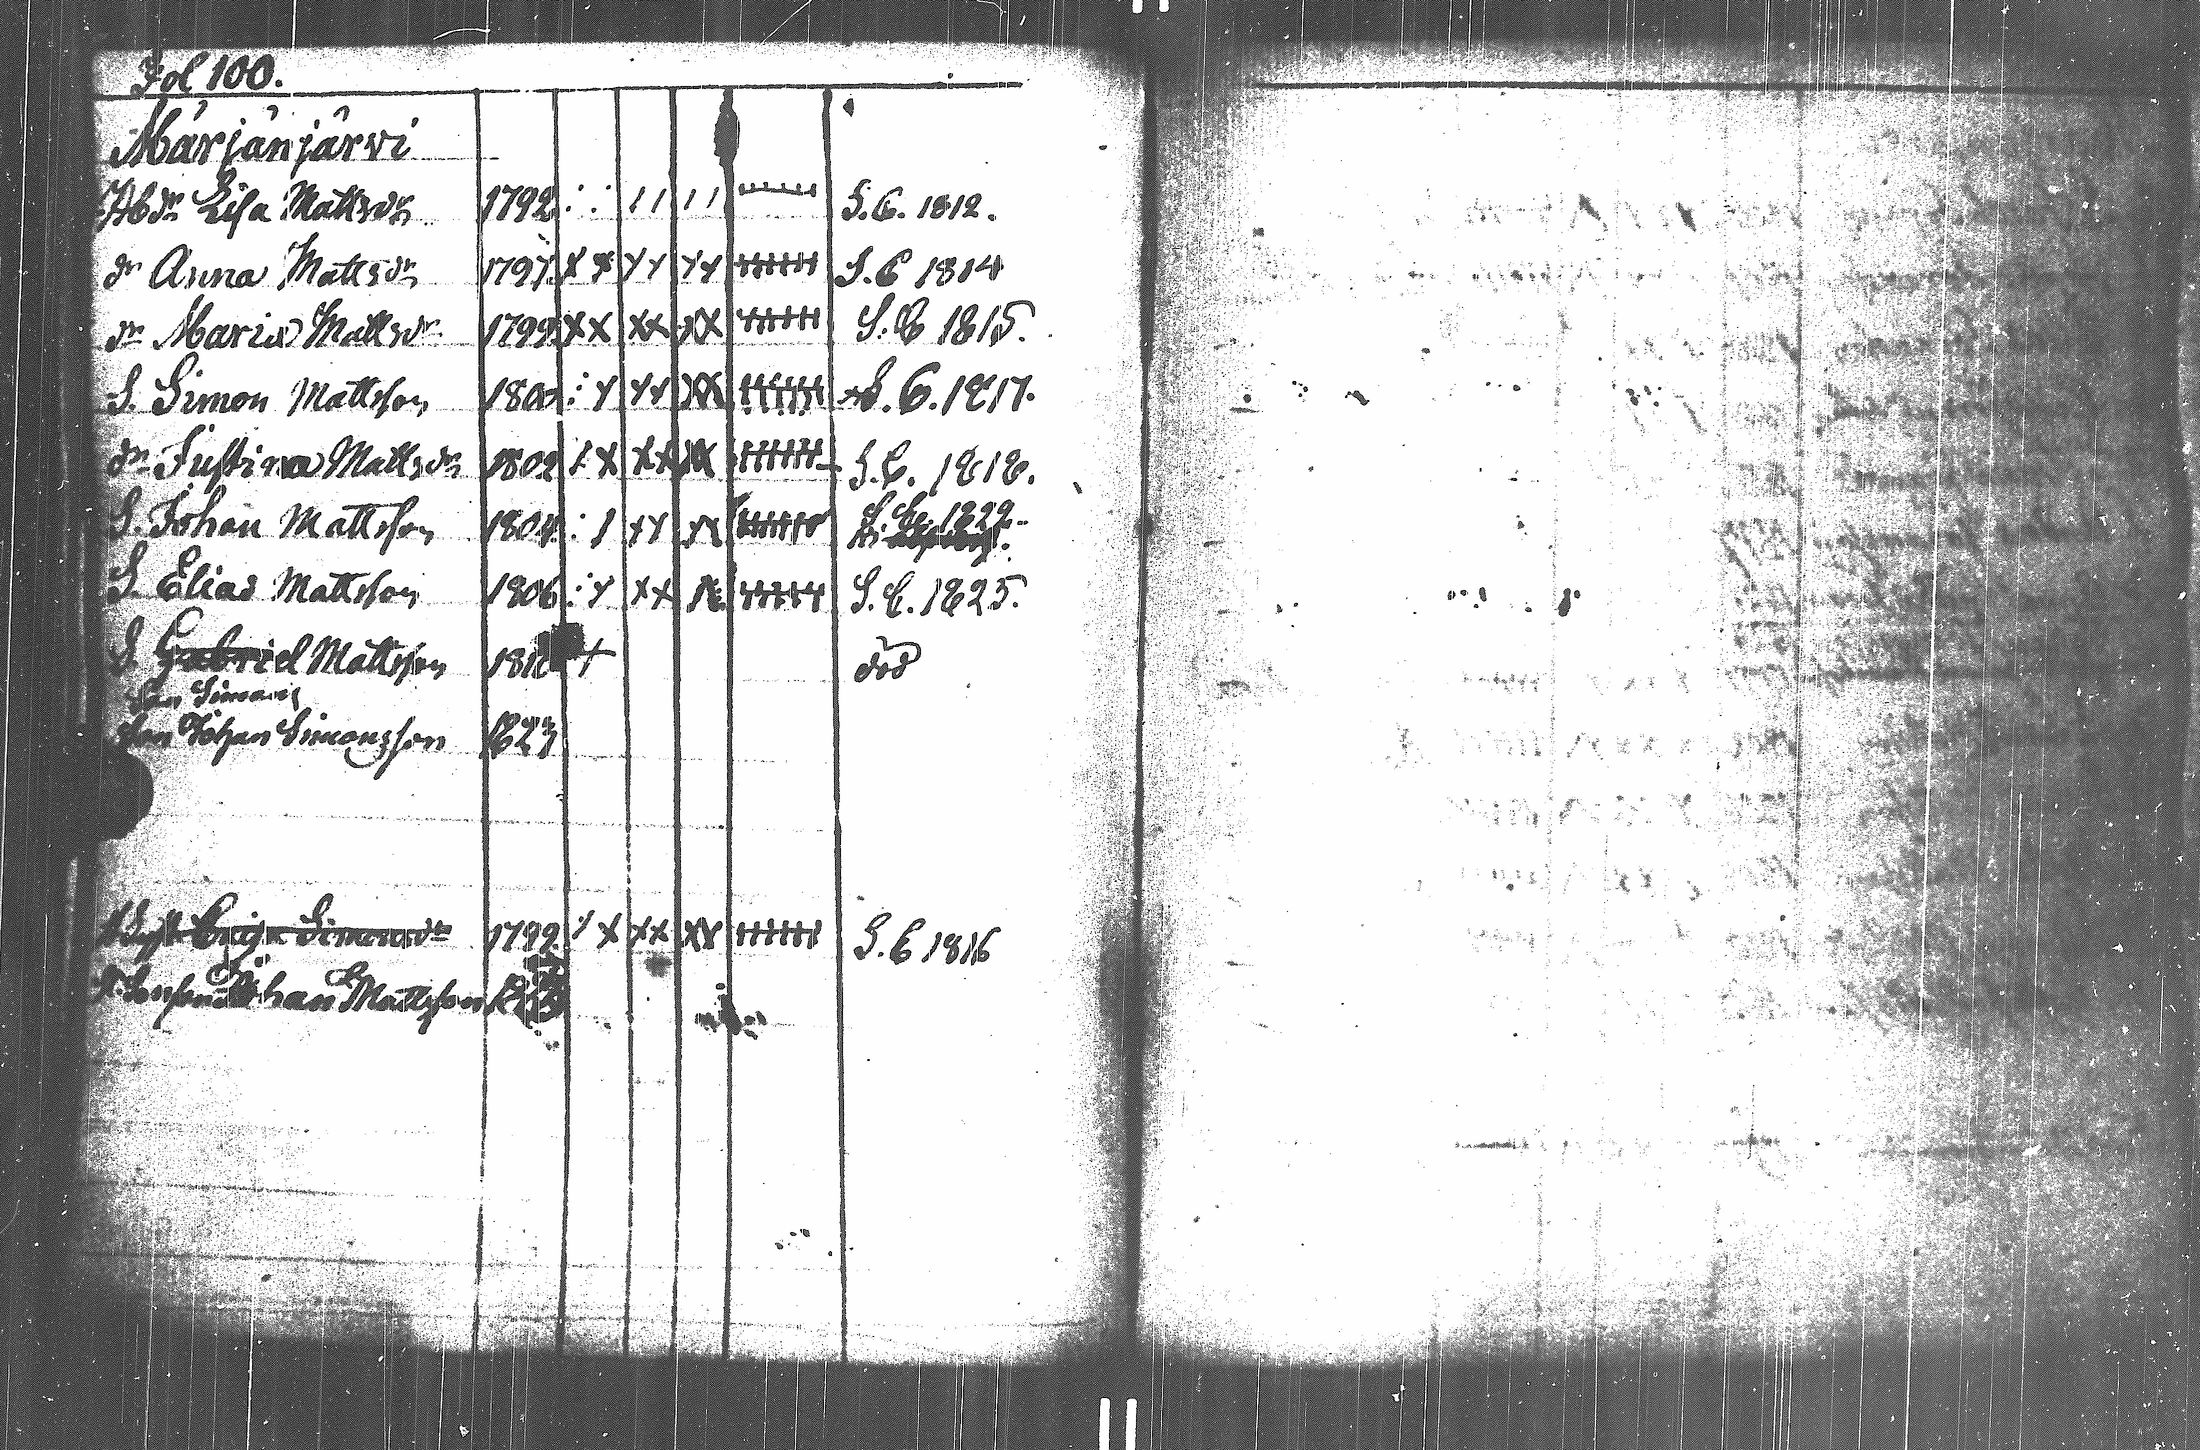 Fol 100.
Märjänjärvi
Abdr Lisa Mattsdr 1792 S.C. 1812.
dr Anna Mattsdr 1797 S.C 1814
dr Maria Mattsdr 1799 S.C 1815.
S. Simon Mattsson 1800 S.C. 1817.
dr Justina Mattsdr 1802 S.C. 1818.
S. Johan Mattsson 1804 S.C. 1822
S. Elias Mattsson 1806 S.C. 1825.
S. Gabriel Mattsson död
Simon
Johan Simonsson 1823
Simonsdr 1799 S.C 1816
Johan Mattsson